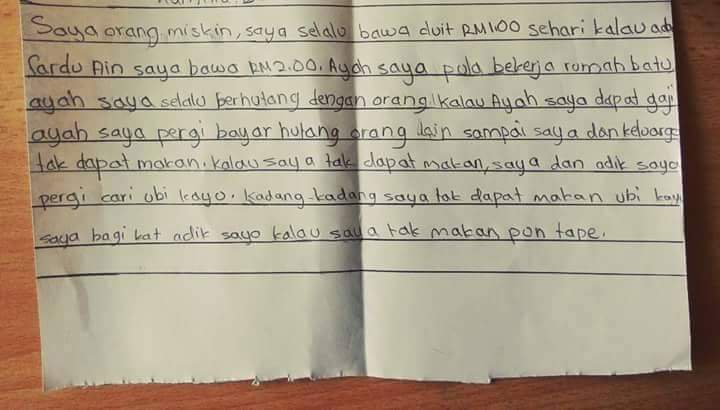 Saya orang miskin, saya selalu bawa duit RM1.00 sehari kalau ada
Fardu Ain saya bawa RM2.00. Ayah saya pula bekerja rumah batu
ayah saya selalu berhutang dengan orang. kalau Ayah saya dapat gaji
ayah saya pergi bayar hutang orang lain sampai saya dan keluarga
tak dapat makan. kalau saya tak dapat makan, saya dan adik saya
pergi cari ubi kayo. kadang-kadang saya tak dapat makan ubi kayu
saya bagi kat adik sayo kalau saya tak makan pon tape.